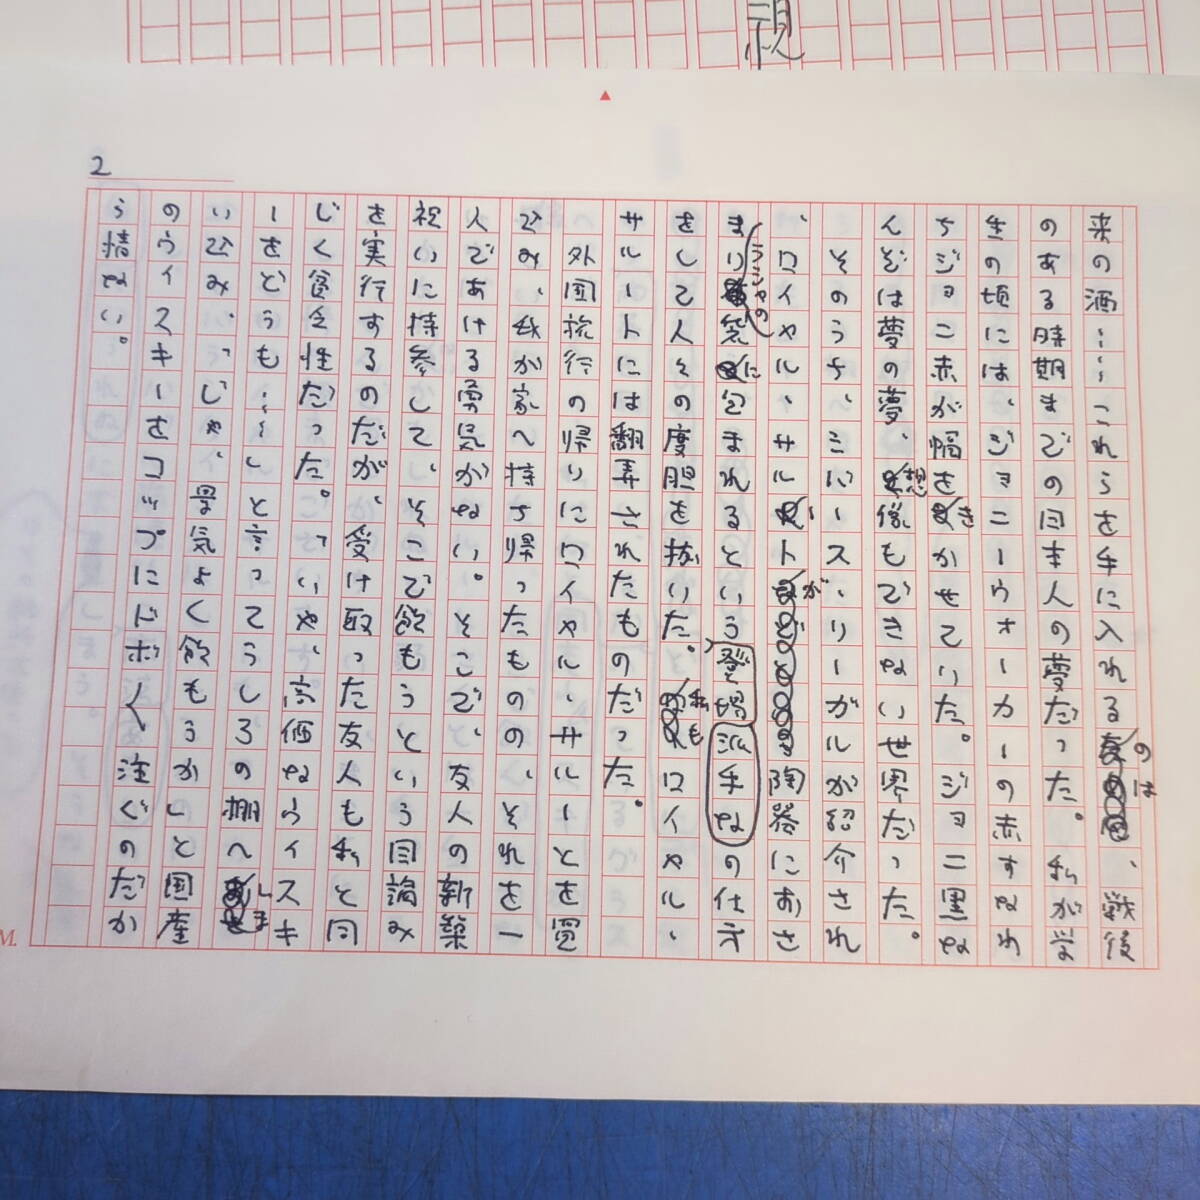 視
2
来の酒……これらを手に入れるのは、戦後
のある時期までの日本人の夢だった。私が学
生の頃には、ジョニーウオーカーの赤すなわ
ちジョニ赤が幅をきかせていた。ジョニ黒な
んぞは夢の夢、想像もできない世界だった。
そのうち、ミバース・リーガルが紹介され
、ロイヤル・サルートが、陶器におさ
まりラシャの袋に包まれるという派手な登場の仕方
をして人々の度胆を抜いた。私もロイヤル・
サルートには翻弄されたものだった。
外国旅行の帰りにロイヤル・サルートを買
い込み、我が家へ持ち帰ったものの、それを一
人であける勇気がない。そこで、友人の新築
祝いに持参して、そこで飲もうという目論み
を実行するのだが、受け取った友人も私と同
じく貧乏性だった。「いや、高価なウイスキ
ーをどうも……」と言ってうしろの棚へしま
い込み、「じゃ、景気よく飲もうか」と国産
のウイスキーをコップにドボドボ注ぐのだか
ら情ない。